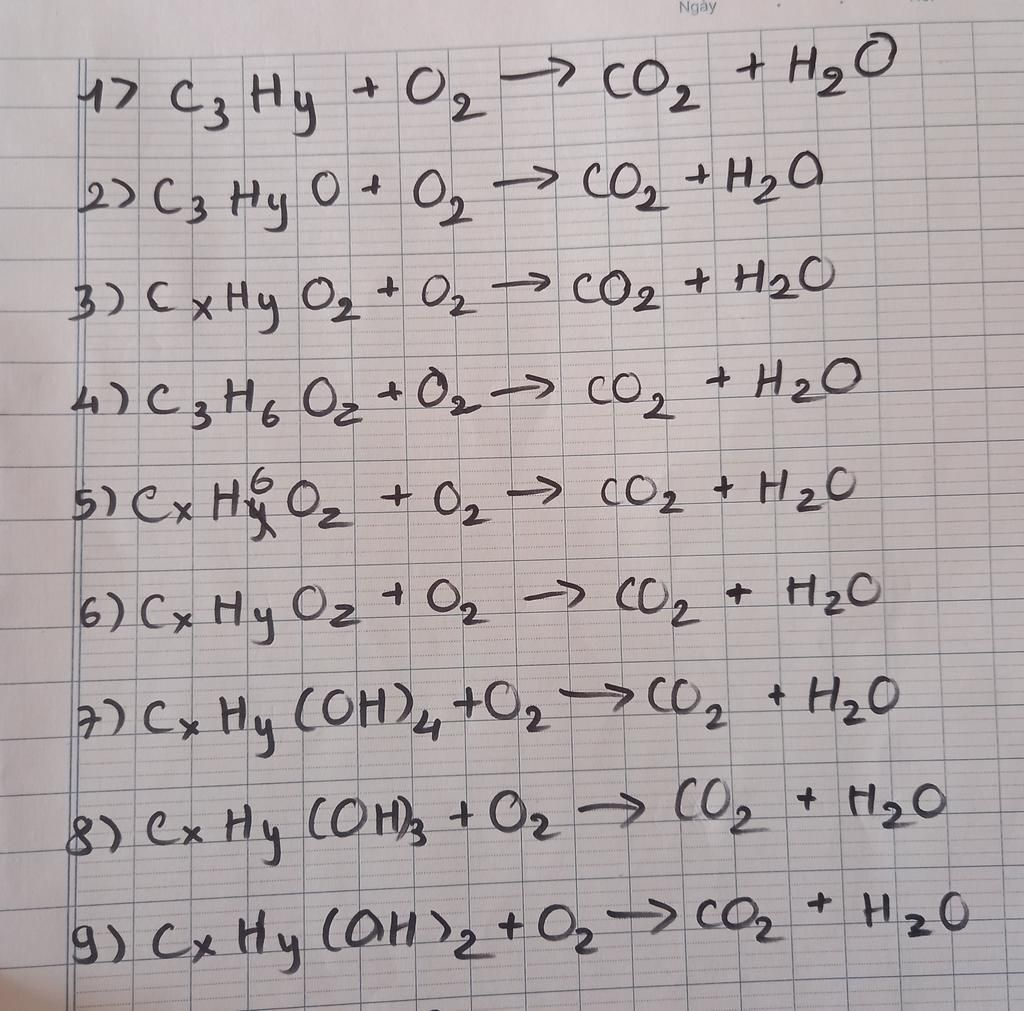 Ngày
1> C₃Hy + O₂ → CO₂ + H₂O
2) C₃HyO + O₂ → CO₂ + H₂O
3) CxHyO₂ + O₂ → CO₂ + H₂O
4) C₃H₆O₂ + O₂ → CO₂ + H₂O
5) CxH₆O₂ + O₂ → CO₂ + H₂O
6) CxHyOz + O₂ → CO₂ + H₂O
7) CxHy(OH)₄ + O₂ → CO₂ + H₂O
8) CxHy(OH)₃ + O₂ → CO₂ + H₂O
9) CxHy(OH)₂ + O₂ → CO₂ + H₂O